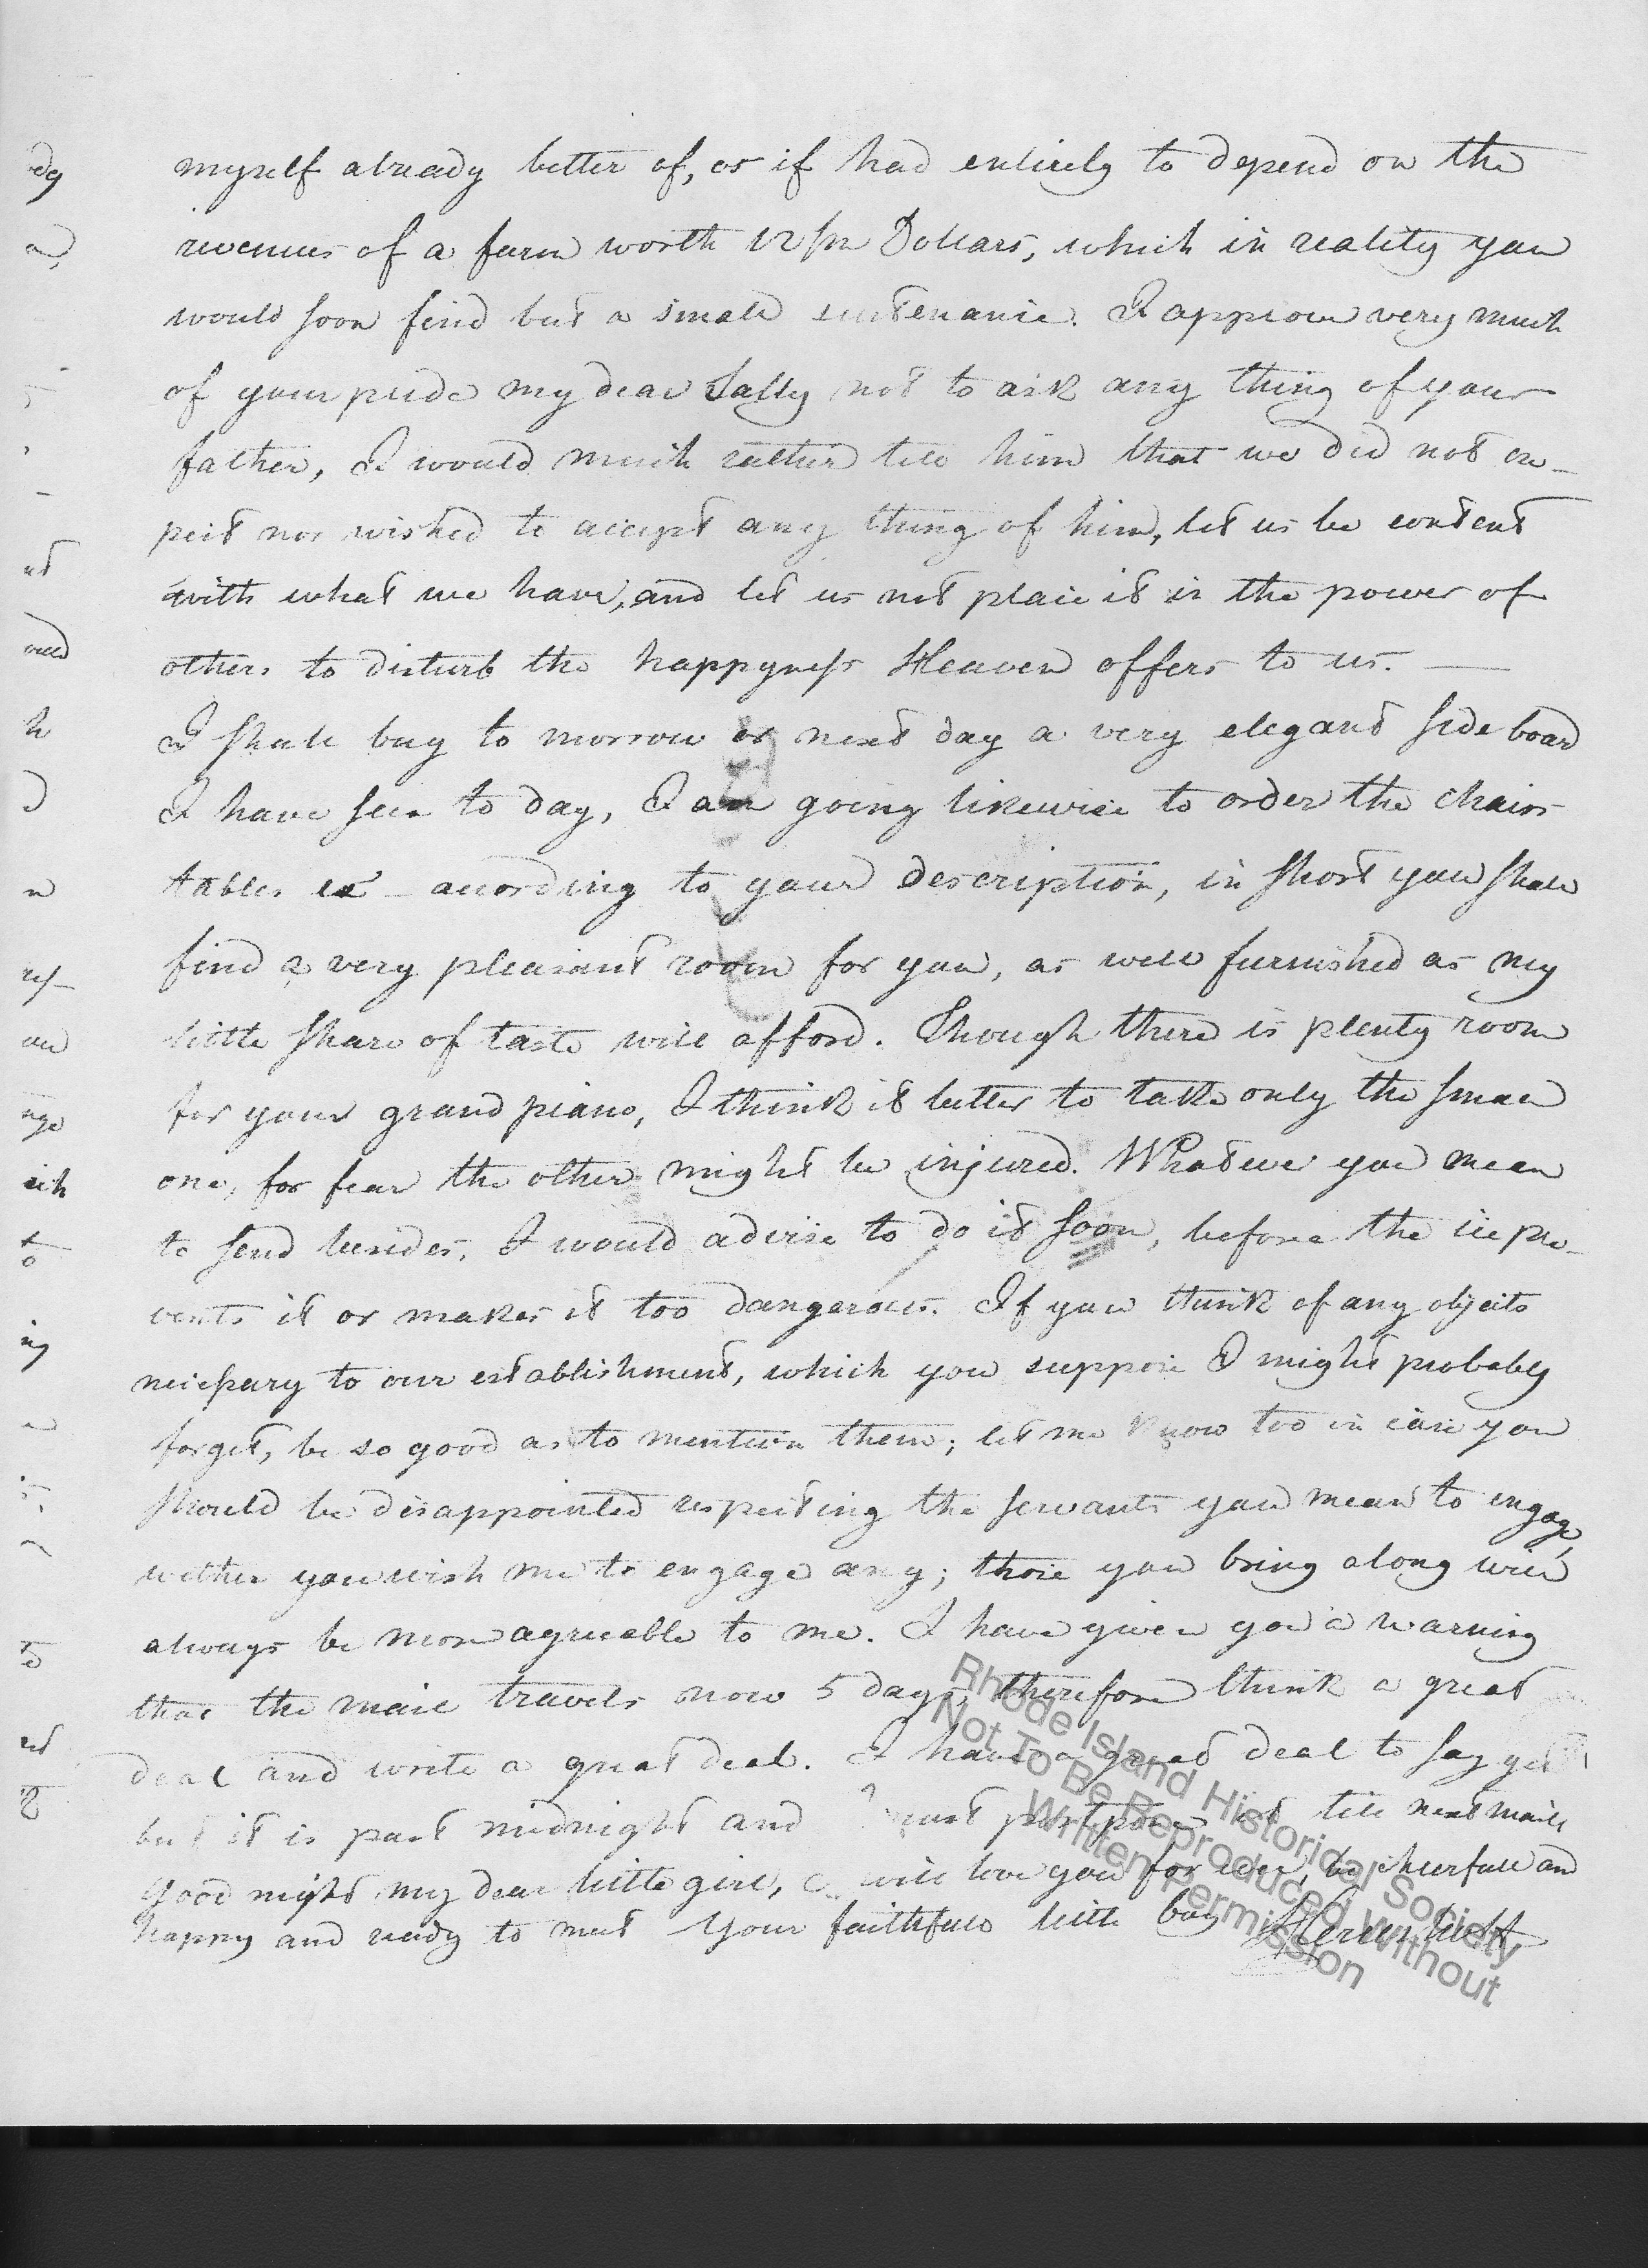 myself already better of, as if had entirely to depend on the
revenues of a farm worth 12/m Dollars, which in reality you
would soon find but a small sustenance. I approve very much
of your pride my dear Sally not to ask any thing of your
father, I would much rather tell him that we did not ex-
pect nor wished to accept any thing of him, let us be content
with what we have, and let us not place it in the power of
others to disturb the happyness Heaven offers to us. —
I shall buy to morrow or next day a very elegant side board
I have seen to day, I am going likewise to order the chairs
tables according to your description, in short you shall
find a very pleasant room for you, as well furnished as my
little share of taste will afford. Though there is plenty room
for your grand piano, I think it better to take only the small
one, for fear the other might be injured. Whatever you mean
to send besides, I would advise to do it soon, before the ice pre-
vents it or makes it too dangerous. If you think of any objects
necessary to our establishment, which you suppose I might probably
forget, be so good as to mention them; let me know too in case you
should be disappointed respecting the servants you mean to engage,
wether you wish me to engage any; those you bring along will
always be more agreeable to me. I have given you a warning
that the mail travels now 5 days, therefore think a great
deal and write a great deal. I have a great deal to say yet
but it is past midnight and I must postpone it till next mail
Good night my dear little girl, I will love you for ever, be cheerfull and
happy and ready to meet Your faithfull little boy
Rhode Island Historical Society
Not To Be Reproduced Without
Written Permission